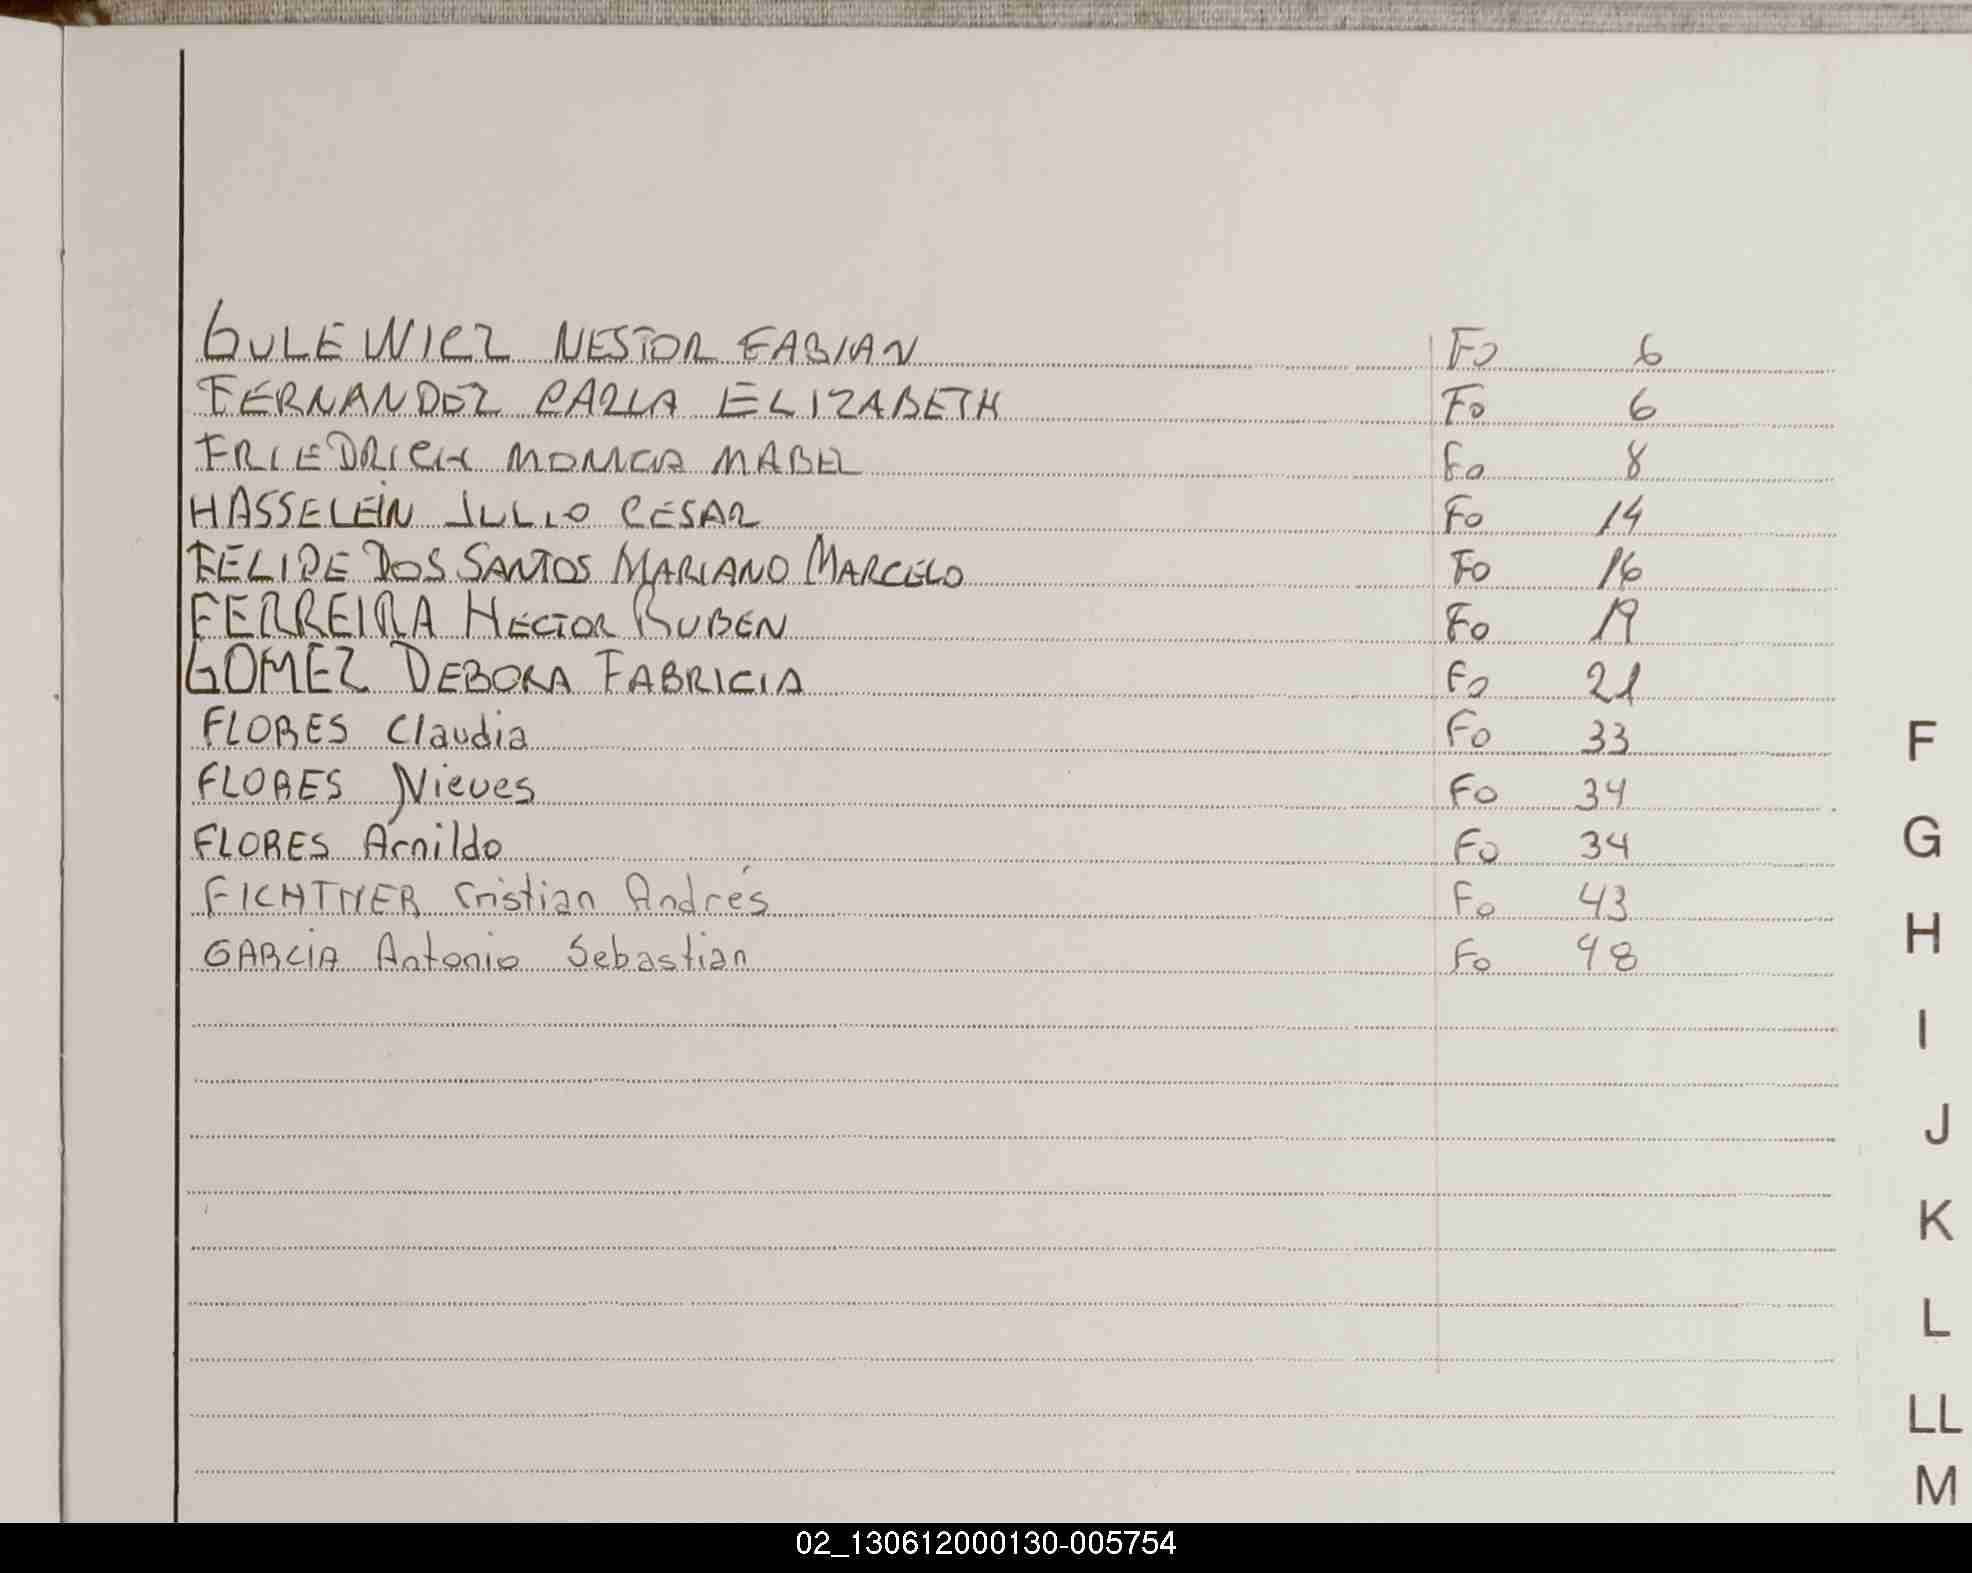 GULEWICZ NESTOR FABIAN Fo 6
FERNANDEZ CARLA ELIZABETH Fo 6
FRIEDRICH MONICA MABEL Fo 8
HASSELEIN JULIO CESAR Fo 14
FELIPE DOS SANTOS MARIANO MARCELO Fo 16
FERREIRA HECTOR RUBEN Fo 19
GOMEZ DEBORA FABRICIA Fo 21
FLORES Claudia Fo 33
FLORES Nieves Fo 34
FLORES Arnildo Fo 34
FICHTNER Cristian Andrés Fo 43
GARCIA Antonio Sebastian Fo 48
F
G
H
I
J
K
L
LL
M
02_130612000130-005754